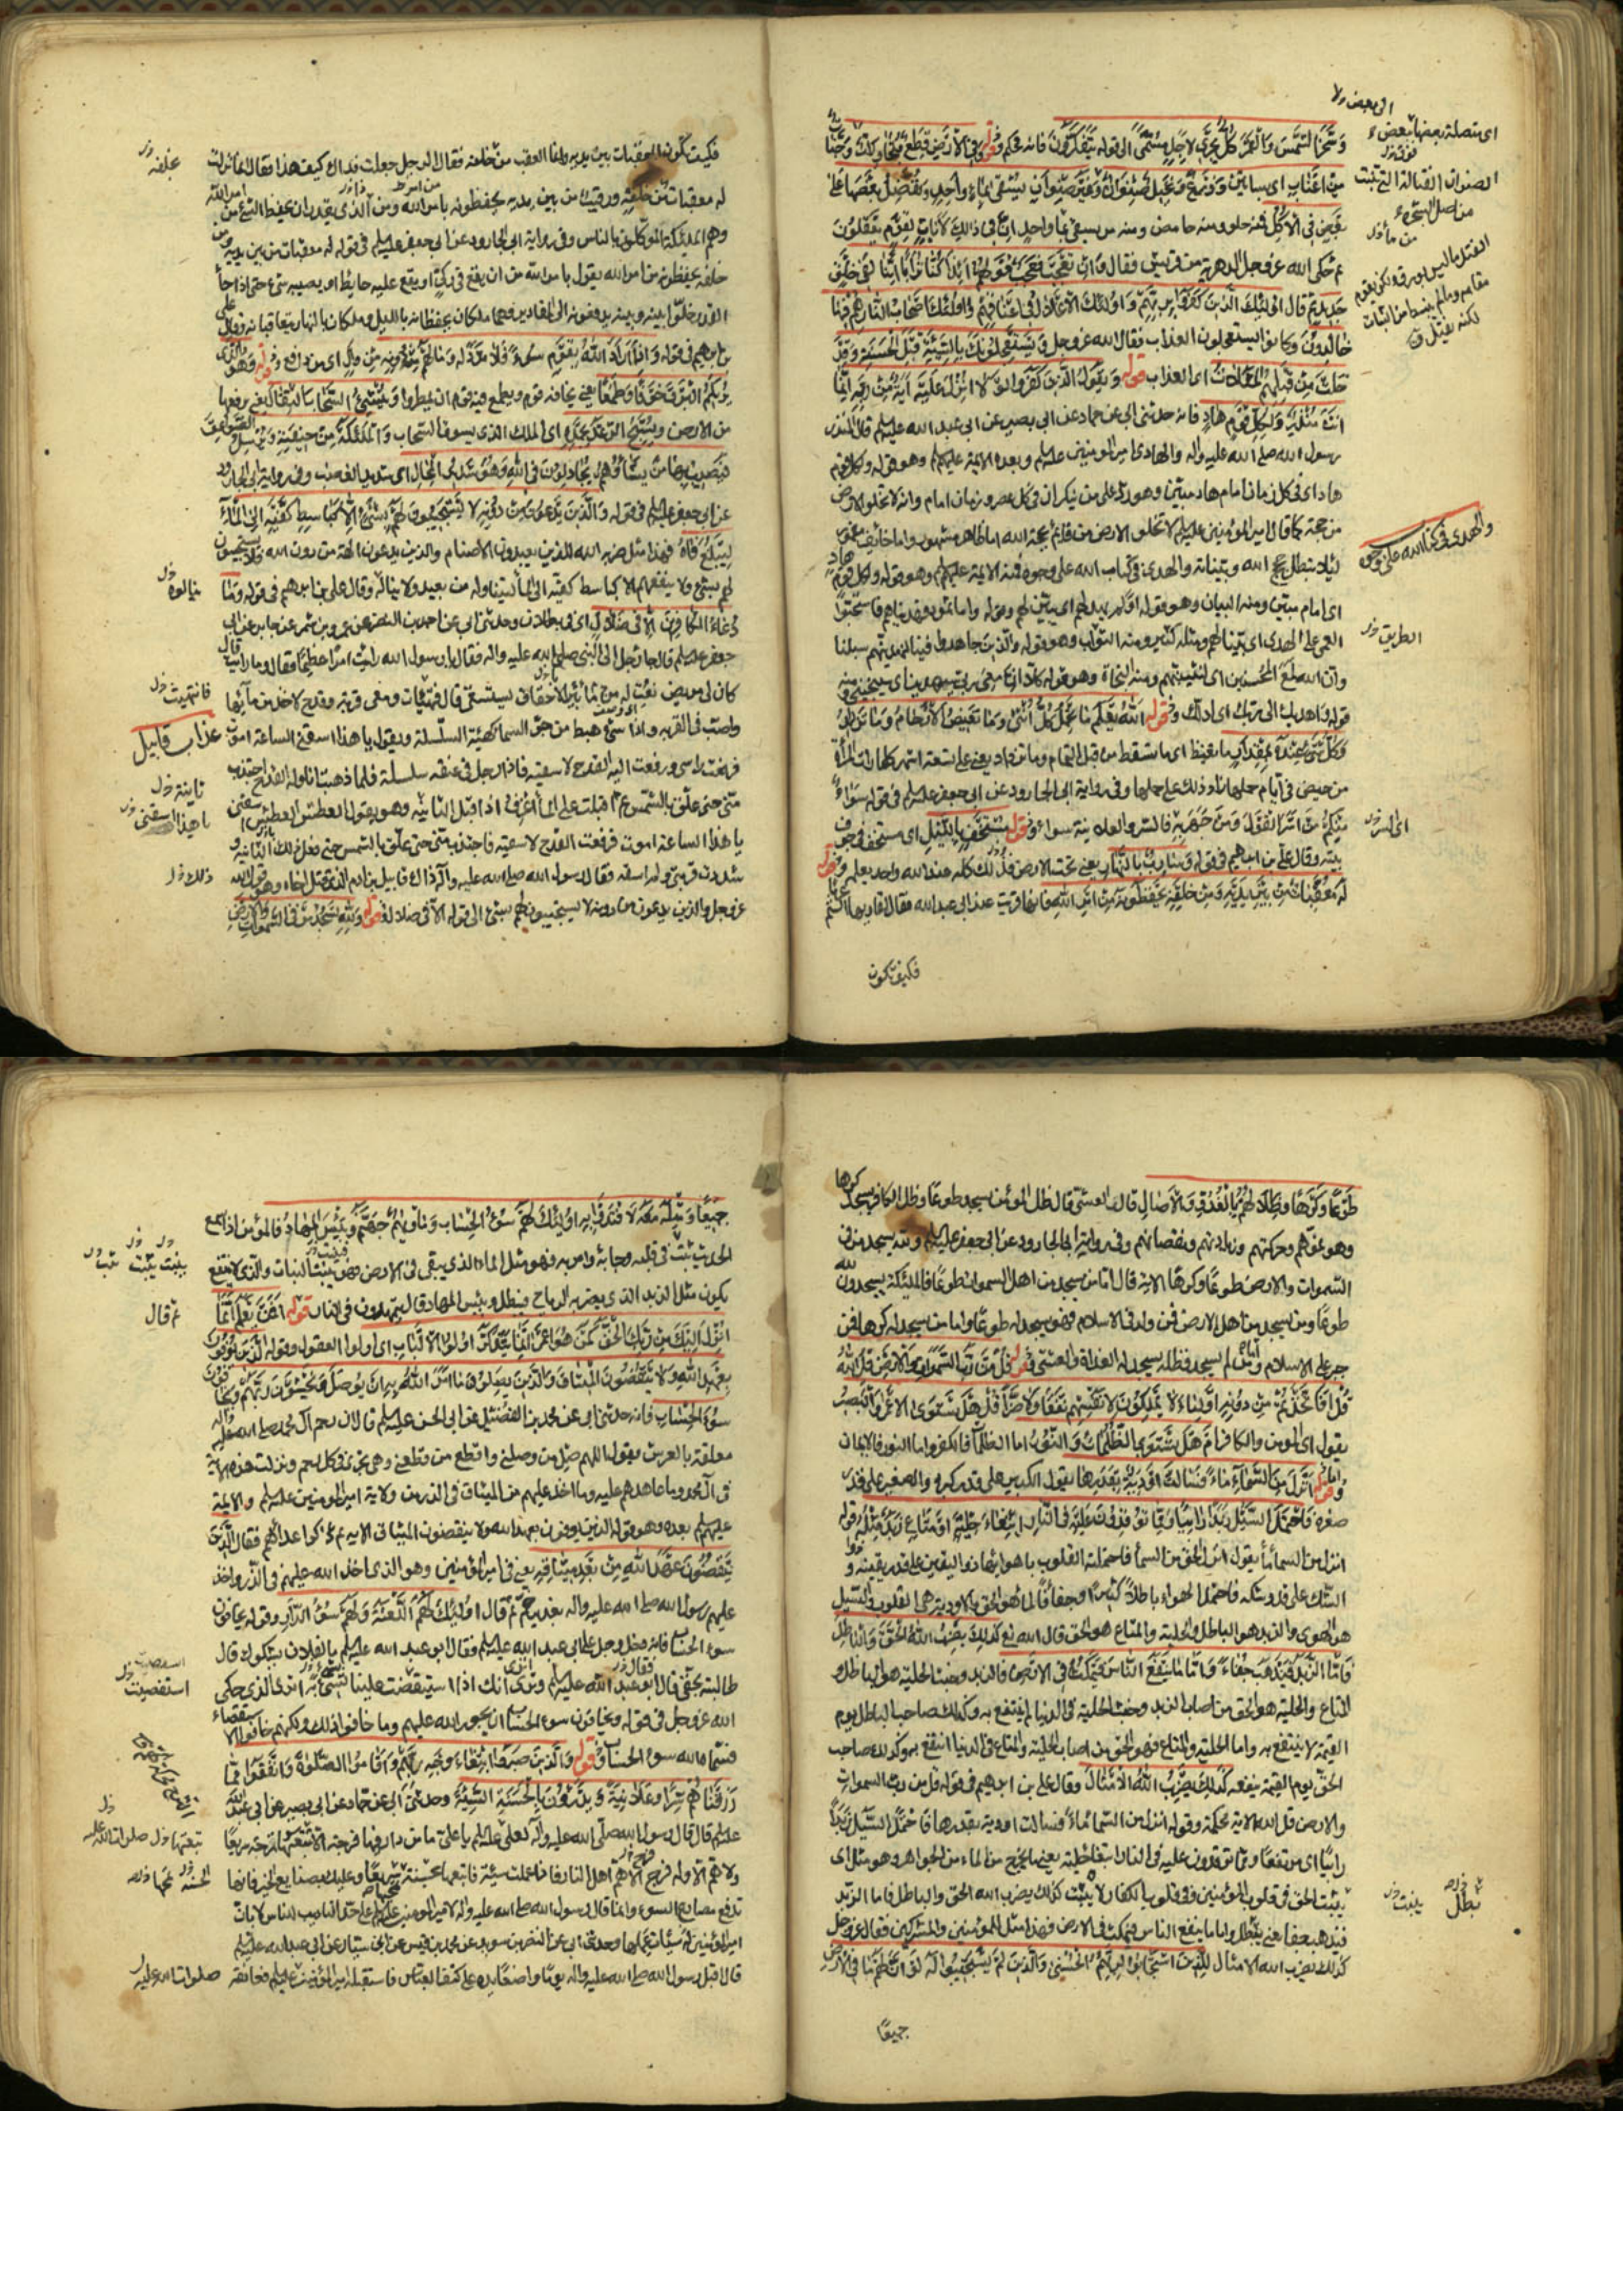 وَسَخَّرَ الشَّمْسَ وَالْقَمَرَ كُلٌّ يَجْرِي لِأَجَلٍ مُسَمًّى الى قوله يَتَفَكَّرُونَ فانه محكم وقوله وَفِي الْأَرْضِ قِطَعٌ مُتَجَاوِرَاتٌ وَجَنَّاتٌ
مِنْ أَعْنَابٍ اى بساتين وَزَرْعٌ وَنَخِيلٌ صِنْوَانٌ وَغَيْرُ صِنْوَانٍ يُسْقَى بِمَاءٍ وَاحِدٍ وَنُفَضِّلُ بَعْضَهَا عَلَى
بَعْضٍ فِي الْأُكُلِ فمنه حلو ومنه حامض ومنه مر يسقى بماء واحد إِنَّ فِي ذَلِكَ لَآيَاتٍ لِقَوْمٍ يَعْقِلُونَ
ثم حكى الله عز وجل الدهرية من قريش فقال وَإِنْ تَعْجَبْ فَعَجَبٌ قَوْلُهُمْ أَئِذَا كُنَّا تُرَابًا أَئِنَّا لَفِي خَلْقٍ
جَدِيدٍ ثم قال أُولَئِكَ الَّذِينَ كَفَرُوا بِرَبِّهِمْ وَأُولَئِكَ الْأَغْلَالُ فِي أَعْنَاقِهِمْ وَأُولَئِكَ أَصْحَابُ النَّارِ هُمْ فِيهَا
خَالِدُونَ وكانوا يستعجلون العذاب فقال الله عز وجل وَيَسْتَعْجِلُونَكَ بِالسَّيِّئَةِ قَبْلَ الْحَسَنَةِ وَقَدْ
خَلَتْ مِنْ قَبْلِهِمُ الْمَثُلَاتُ اى العذاب قوله وَيَقُولُ الَّذِينَ كَفَرُوا لَوْلَا أُنْزِلَ عَلَيْهِ آيَةٌ مِنْ رَبِّهِ إِنَّمَا
أَنْتَ مُنْذِرٌ وَلِكُلِّ قَوْمٍ هَادٍ فانه حدثنى ابى عن حماد عن ابى بصير عن ابى عبد الله عليه السلم قال المنذر
رسول الله صلى الله عليه وآله والهادى امير المؤمنين عليه السلم وبعده الائمة عليهم السلم وهو قوله ولكل قوم
هاد اى فى كل زمان امام هاد مبين وهو رد على من ينكر ان فى كل عصر وزمان امام وانه لا تخلو الارض
من حجة كما قال امير المؤمنين عليه السلم لا تخلو الارض من قائم بحجة الله اما ظاهر مشهور واما خائف مغمور
لئلا تبطل حجج الله وبيناته والهدى فى كتاب الله على وجوه فمنه الائمة عليهم السلم وهو قوله ولكل قوم هاد
اى امام مبين ومنه البيان وهو قوله افلم يهد لهم اى يبين لهم وقوله واما ثمود فهديناهم فاستحبوا
العمى على الهدى اى بينا لهم ومثله كثير ومنه الثواب وهو قوله والذين جاهدوا فينا لنهدينهم سبلنا
وان الله لمع المحسنين اى لنثيبنهم ومنه النجاة وهو قوله كلا ان معى ربى سيهدين اى سينجينى ومنه
قوله واهديك الى ربك اى ادلك وقوله اللَّهُ يَعْلَمُ مَا تَحْمِلُ كُلُّ أُنْثَى وَمَا تَغِيضُ الْأَرْحَامُ وَمَا تَزْدَادُ
وَكُلُّ شَيْءٍ عِنْدَهُ بِمِقْدَارٍ ما تغيض اى ما تسقط من قبل التمام وما تزداد يعنى على تسعة اشهر كلما رات المرأة
من حيض فى ايام حملها زاد ذلك على حملها وفى رواية ابى الجارود عن ابى جعفر عليه السلم فى قوله سَوَاءٌ
مِنْكُمْ مَنْ أَسَرَّ الْقَوْلَ وَمَنْ جَهَرَ بِهِ فالسر والعلانية سواء وقوله مُسْتَخْفٍ بِاللَّيْلِ اى مستخف فى جوف
بيته وقال على بن ابراهيم فى قوله وَسَارِبٌ بِالنَّهَارِ يعنى تحت الارض فذلك كله عند الله واحد يعلمه وقوله
لَهُ مُعَقِّبَاتٌ مِنْ بَيْنِ يَدَيْهِ وَمِنْ خَلْفِهِ يَحْفَظُونَهُ مِنْ أَمْرِ اللَّهِ فانها قرئت عند ابى عبد الله فقال لقاريها الستم عربا
فكيف تكون
اى متصلة بعضها ببعض
الصنوان الفتالة التى تنبت
من اصل الشجرة
والهدى فى كتاب الله على وجوه
الطريق
فكيف تكون المعقبات من بين يديه وانما العقب من خلفه فقال الرجل جعلت فداك كيف هذا فقال انما نزلت
له معقبات من خلفه ورقيب من بين يديه يحفظونه بامر الله ومن الذى يقدر ان يحفظ الشئ من امر الله
وهم الملئكة الموكلون بالناس وفى رواية ابى الجارود عن ابى جعفر عليه السلم فى قوله له معقبات من بين يديه ومن
خلفه يحفظونه من امر الله يقول بامر الله من ان يقع فى ركى او يقع عليه حايط او يصيبه شئ حتى اذا جاء
القدر خلوا بينه وبينه يدفعونه الى المقادير وهما ملكان يحفظانه بالليل وملكان بالنهار يتعاقبانه وقال على
بن ابراهيم فى قوله وَإِذَا أَرَادَ اللَّهُ بِقَوْمٍ سُوءًا فَلَا مَرَدَّ لَهُ وَمَا لَهُمْ مِنْ دُونِهِ مِنْ وَالٍ اى من دافع وقوله وَهُوَ الَّذِي
يُرِيكُمُ الْبَرْقَ خَوْفًا وَطَمَعًا يعنى يخافه قوم ويطمع فيه قوم ان يمطروا وَيُنْشِئُ السَّحَابَ الثِّقَالَ يعنى يرفعها
من الارض وَيُسَبِّحُ الرَّعْدُ بِحَمْدِهِ اى الملك الذى يسوق السحاب وَالْمَلَائِكَةُ مِنْ خِيفَتِهِ وَيُرْسِلُ الصَّوَاعِقَ
فَيُصِيبُ بِهَا مَنْ يَشَاءُ وَهُمْ يُجَادِلُونَ فِي اللَّهِ وَهُوَ شَدِيدُ الْمِحَالِ اى شديد الغضب وفى رواية ابى الجارود
عن ابى جعفر عليه السلم فى قوله وَالَّذِينَ يَدْعُونَ مِنْ دُونِهِ لَا يَسْتَجِيبُونَ لَهُمْ بِشَيْءٍ إِلَّا كَبَاسِطِ كَفَّيْهِ إِلَى الْمَاءِ
لِيَبْلُغَ فَاهُ فهذا مثل ضربه الله للذين يعبدون الاصنام والذين يدعون الهة من دون الله فلا يستجيبون
لهم بشئ ولا ينفعهم الا كباسط كفيه الى الماء ليتناوله من بعيد ولا يناله وقال على بن ابراهيم فى قوله وَمَا
دُعَاءُ الْكَافِرِينَ إِلَّا فِي ضَلَالٍ اى فى بطلان وحدثنى ابى عن احمد بن النضر عن عمرو بن شمر عن جابر عن ابى
جعفر عليه السلم قال جاء رجل الى النبى صلى الله عليه واله فقال يا رسول الله رايت امرا عظيما فقال وما رايت قال
كان لى مريض نعت له من ماء بئر الاحقاف يستشفى قال فتهيأت ومعى قربة وقدح لاخذ من مائها
واصب فى القربة واذا شئ هبط من جو السماء كهيئة السلسلة ويقول يا هذا اسقنى الساعة اموت
فرفعت راسى ورفعت اليه القدح لاسقيه فاذا رجل فى عنقه سلسلة فلما ذهبت اناوله القدح اجتذب
منى حتى علق بالشمس ثم اقبلت على الماء اغرف اذ اقبل الثانية وهو يقول العطش العطش اسقنى
يا هذا الساعة اموت فرفعت القدح لاسقيه فاجتذب منى حتى علق بالشمس حتى فعل ذلك الثالثة
شددت قربتى ولم اسقه فقال رسول الله صلى الله عليه وآله ذاك قابيل بن ادم الذى قتل اخاه وهو قول الله
عز وجل والذين يدعون من دونه لا يستجيبون لهم بشئ الى قوله الا فى ضلال قوله وَلِلَّهِ يَسْجُدُ مَنْ فِي السَّمَاوَاتِ وَالْأَرْضِ
عذاب قابيل
طَوْعًا وَكَرْهًا وَظِلَالُهُمْ بِالْغُدُوِّ وَالْآصَالِ قال بالعشى قال ظل المؤمن يسجد طوعا وظل الكافر يسجد كرها
وهو نموهم وحركتهم وزيادتهم ونقصانهم وفى رواية ابى الجارود عن ابى جعفر عليه السلم ولله يسجد من فى
السموات والارض طوعا وكرها الاية قال اما من يسجد من اهل السموات طوعا فالملئكة يسجدون لله
طوعا ومن يسجد من اهل الارض فمن ولد فى الاسلام فهو يسجد له طوعا واما من يسجد له كرها فمن
جبر على الاسلام واما من لم يسجد فظله يسجد له الغداة والعشى قوله قُلْ مَنْ رَبُّ السَّمَاوَاتِ وَالْأَرْضِ قُلِ اللَّهُ
قُلْ أَفَاتَّخَذْتُمْ مِنْ دُونِهِ أَوْلِيَاءَ لَا يَمْلِكُونَ لِأَنْفُسِهِمْ نَفْعًا وَلَا ضَرًّا قُلْ هَلْ يَسْتَوِي الْأَعْمَى وَالْبَصِيرُ
يقول اى المومن والكافر أَمْ هَلْ تَسْتَوِي الظُّلُمَاتُ وَالنُّورُ اما الظلمات فالكفر واما النور فالايمان
وقوله أَنْزَلَ مِنَ السَّمَاءِ مَاءً فَسَالَتْ أَوْدِيَةٌ بِقَدَرِهَا يقول الكبير على قدر كبره والصغير على قدر
صغره فَاحْتَمَلَ السَّيْلُ زَبَدًا رَابِيًا وَمِمَّا يُوقِدُونَ عَلَيْهِ فِي النَّارِ ابْتِغَاءَ حِلْيَةٍ أَوْ مَتَاعٍ زَبَدٌ مِثْلُهُ قوله
انزل من السماء ماء يقول انزل الحق من السماء فاحتملته القلوب باهوائها ذو اليقين على قدر يقينه وذو
الشك على قدر شكه فاحتمل الهوى باطلا كثيرا وجفاء فالماء هو الحق والاودية هى القلوب والسيل
هو الهوى والزبد هو الباطل والحلية والمتاع هو الحق قال الله كَذَلِكَ يَضْرِبُ اللَّهُ الْحَقَّ وَالْبَاطِلَ
فَأَمَّا الزَّبَدُ فَيَذْهَبُ جُفَاءً وَأَمَّا مَا يَنْفَعُ النَّاسَ فَيَمْكُثُ فِي الْأَرْضِ فالزبد وخبث الحلية هو الباطل و
المتاع والحلية هو الحق من اصاب الزبد وخبث الحلية فى الدنيا لم ينتفع به وكذلك صاحب الباطل يوم
القيمة لا ينتفع به واما الحلية والمتاع فهو الحق من اصاب الحلية والمتاع فى الدنيا انتفع به وكذلك صاحب
الحق يوم القيمة ينفعه كَذَلِكَ يَضْرِبُ اللَّهُ الْأَمْثَالَ وقال على بن ابراهيم فى قوله قل من رب السموات
والارض قل الله الاية محكمة وقوله انزل من السماء ماء فسالت اودية بقدرها فاحتمل السيل زبدا
رابيا اى مرتفعا ومما توقدون عليه فى النار ابتغاء حلية يعنى ما يخرج من الماء من الجواهر وهو مثل اى
يثبت الحق فى قلوب المؤمنين وفى قلوب الكفار لا يثبت كذلك يضرب الله الحق والباطل فاما الزبد
فيذهب جفاء يعنى يبطل واما ما ينفع الناس فيمكث فى الارض فهذا مثل المؤمنين والمشركين فقال عز وجل
كذلك يضرب الله الامثال لِلَّذِينَ اسْتَجَابُوا لِرَبِّهِمُ الْحُسْنَى وَالَّذِينَ لَمْ يَسْتَجِيبُوا لَهُ لَوْ أَنَّ لَهُمْ مَا فِي الْأَرْضِ
جميعًا
جَمِيعًا وَمِثْلَهُ مَعَهُ لَافْتَدَوْا بِهِ أُولَئِكَ لَهُمْ سُوءُ الْحِسَابِ وَمَأْوَاهُمْ جَهَنَّمُ وَبِئْسَ الْمِهَادُ فالمؤمن اذا سمع
الحديث ثبت فى قلبه واجابه وامن به فهو مثل الماء الذى يبقى فى الارض فينبت النبات والذى لا ينتفع
يكون مثل الزبد الذى يضربه الرياح فيبطل وبئس المهاد قال يتمهدون فى النار قوله أَفَمَنْ يَعْلَمُ أَنَّمَا
أُنْزِلَ إِلَيْكَ مِنْ رَبِّكَ الْحَقُّ كَمَنْ هُوَ أَعْمَى إِنَّمَا يَتَذَكَّرُ أُولُو الْأَلْبَابِ اى اولوا العقول وقوله الَّذِينَ يُوفُونَ
بِعَهْدِ اللَّهِ وَلَا يَنْقُضُونَ الْمِيثَاقَ وَالَّذِينَ يَصِلُونَ مَا أَمَرَ اللَّهُ بِهِ أَنْ يُوصَلَ وَيَخْشَوْنَ رَبَّهُمْ وَيَخَافُونَ
سُوءَ الْحِسَابِ فانه حدثنى ابى عن محمد بن الفضيل عن ابى الحسن عليه السلم قال ان رحم آل محمد صلى الله عليه وآله
معلقة بالعرش يقول اللهم صل من وصلنى واقطع من قطعنى وهى تجرى فى كل رحم ونزلت هذه الاية
فى آل محمد وما عاهدهم عليه وما اخذ عليهم من الميثاق فى الذر من ولاية امير المومنين عليه السلم والائمة
عليهم السلم بعده وهو قوله الذين يوفون بعهد الله ولا ينقضون الميثاق الاية ثم ذكر اعداءهم فقال الَّذِينَ
يَنْقُضُونَ عَهْدَ اللَّهِ مِنْ بَعْدِ مِيثَاقِهِ يعنى فى امير المؤمنين وهو الذى اخذ الله عليهم فى الذر واخذ
عليهم رسول الله صلى الله عليه واله بغدير خم ثم قال أُولَئِكَ لَهُمُ اللَّعْنَةُ وَلَهُمْ سُوءُ الدَّارِ وقوله يخافون
سوء الحساب فانه دخل رجل على ابى عبد الله عليه السلم فقال ابو عبد الله عليه السلم ما لفلان يشكوك قال
طالبته بحقى فقال ابو عبد الله عليه السلم وترى انك اذا استقضيت عليه لم تسئ به اترى الذى حكى
الله عز وجل فى قوله ويخافون سوء الحساب ان يجور الله عليهم وما خافوا ذلك ولكنهم خافوا الاستقصاء
فسماه الله سوء الحساب قوله وَالَّذِينَ صَبَرُوا ابْتِغَاءَ وَجْهِ رَبِّهِمْ وَأَقَامُوا الصَّلَاةَ وَأَنْفَقُوا مِمَّا
رَزَقْنَاهُمْ سِرًّا وَعَلَانِيَةً وَيَدْرَءُونَ بِالْحَسَنَةِ السَّيِّئَةَ وحدثنى ابى عن حماد عن ابى بصير عن ابى عبد الله
عليه السلم قال قال رسول الله صلى الله عليه وآله لعلى عليه السلم يا على ما من دار فيها فرحة الا تبعتها ترحة
وما من هم الا وله فرج الا هم اهل النار فاذا عملت سيئة فاتبعها بحسنة تمحها سريعا وعليك بصنايع الخير فانها
تدفع مصارع السوء وانما قال رسول الله صلى الله عليه واله لامير المومنين عليه السلم على حد التاديب للناس لا بان
امير المؤمنين له سيئات عملها وحدثنى ابى عن النضر بن سويد عن محمد بن قيس عن ابن سيار عن ابى عبد الله عليه السلم
قال اقبل رسول الله صلى الله عليه واله يوما واضعا يده على كتف العباس فاستقبله امير المؤمنين عليه السلم فعانقه
ثم قال
استقصيت
صلوات الله عليه